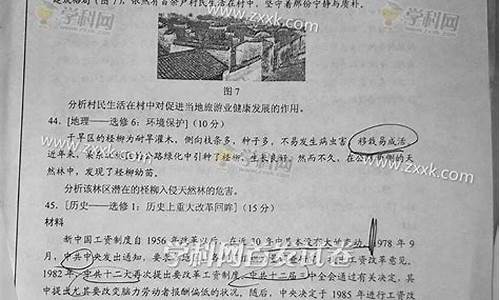 建成格局(图7)，依然有百余户村民生活在村中，坚守着那份宁静与质朴。
学科网
www.zxxk.com
图7
分析村民生活在村中对促进当地旅游业健康发展的作用。
44. [地理——选修6：环境保护] (10分)
干旱区的柽柳为耐旱灌木，侧向枝条多，种子多，不易发生病虫害，移栽易成活。
近年来，某
公路绿化中引种了柽柳，生长良好。然而不久，在公路
侧的天
然林中，发现了柽柳幼苗。
分析该林区潜在的柽柳入侵天然林的危害。
45. [历史——选修1：历史上重大改革回眸] (15分)
材料
新中国工资制度自1956年改革以后，在近30年中基本没有大的变动。1978年9
月，中共中央发出通知，要
工资改革意见。
1982年，中共十二大再次提出要改革工资制度。中共十二届三中全会通过有关决定，其
中提出尤其要改变脑力劳动者报酬偏低的状况。随后，中央决定于1985年进行工资改
学科网首发试卷
www.zxxk.com